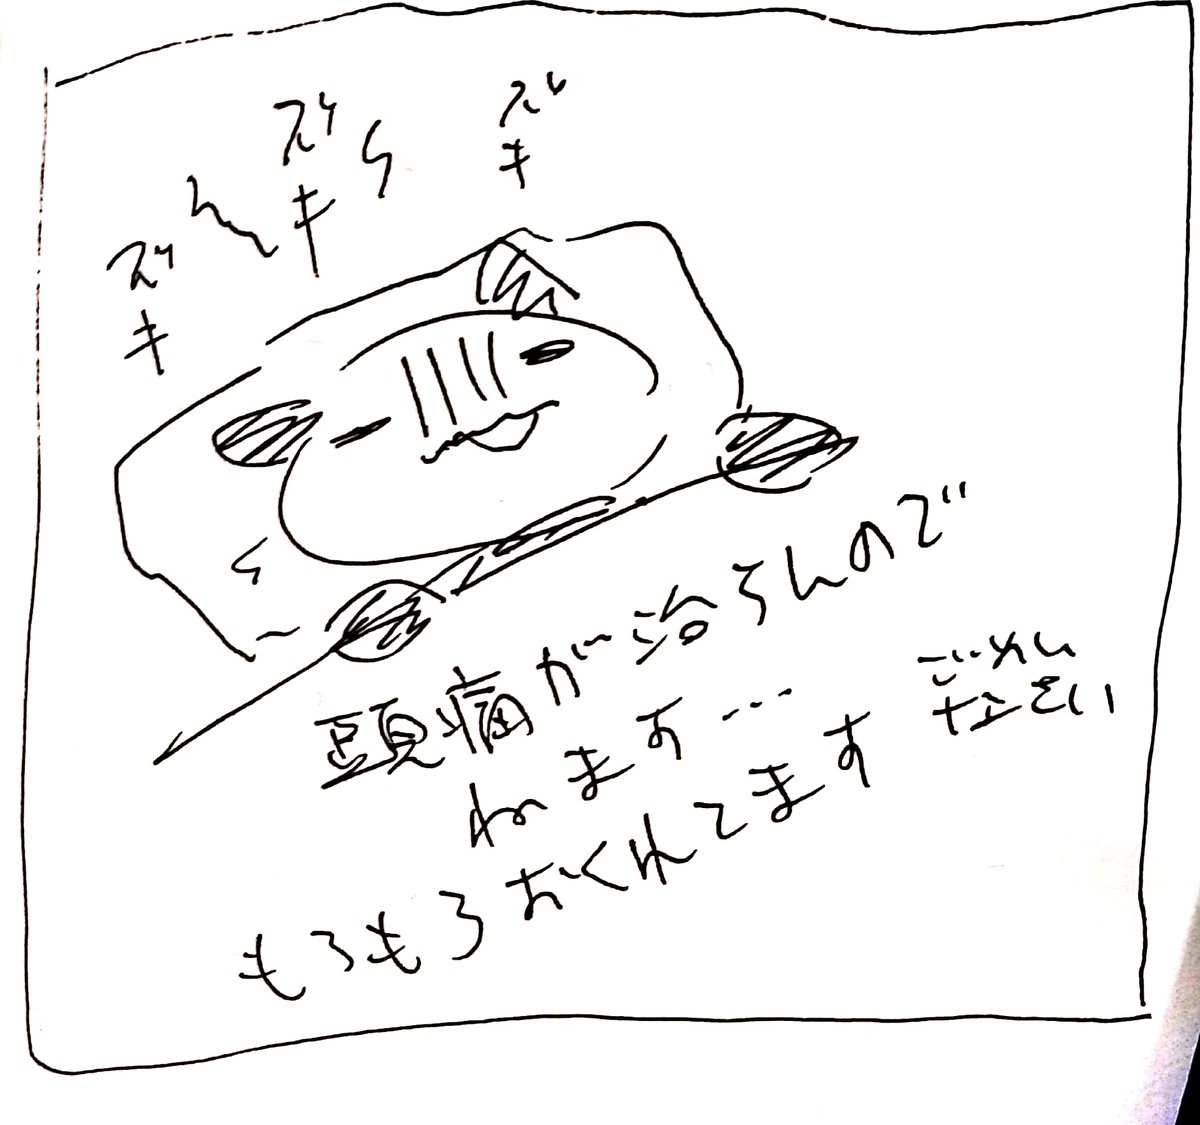 ズキ
ズキ
ズキ
頭痛が治らんので
ねます…
もろもろおくれてます
ごめん
なさい